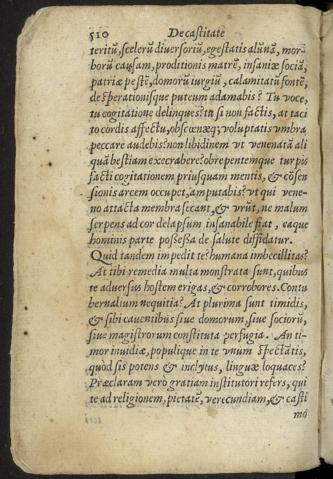 510 De castitate
teritū, scelerū diuersoriū, egestatis alūnā, mor-
borū causam, proditionis matrē, insaniæ sociā,
patriæ pestē, domorū iurgiū, calamitatū fontē,
desperationisque puteum adamabis? Tu voce,
tu cogitatione delinques? tu si non factis, at taci
to cordis affectu, obscœnæq; voluptatis vmbra
peccare audebis? non libidinem vt venenatā ali
quā bestiam execrabere? obrepentemque turpis
facti cogitationem priusquam mentis, & cōsen
sionis arcem occupet, amputabis? vt qui vene-
no attacta membra secant, & vrūt, ne malum
serpens ad cor delapsum insanabile fiat, eaque
hominis parte possessa de salute diffidatur.
Quid tandem impedit te? humana imbecillitas?
At tibi remedia multa monstrata sunt, quibus
te aduersus hostem erigas, & corrobores. Contu
bernaliun nequitia? At plurima sunt timidis,
& sibi cauentibus siue domorum, siue sociorū,
siue magistrorum constituta perfugia. An ti-
mor inuidiæ, populique in te vnum spectātis,
quòd sis potens & inclytus, linguæ loquaces?
Præclaram verò gratiam institutori refers, qui
te ad religionem, pietatē, verecundiam, & casti
mo